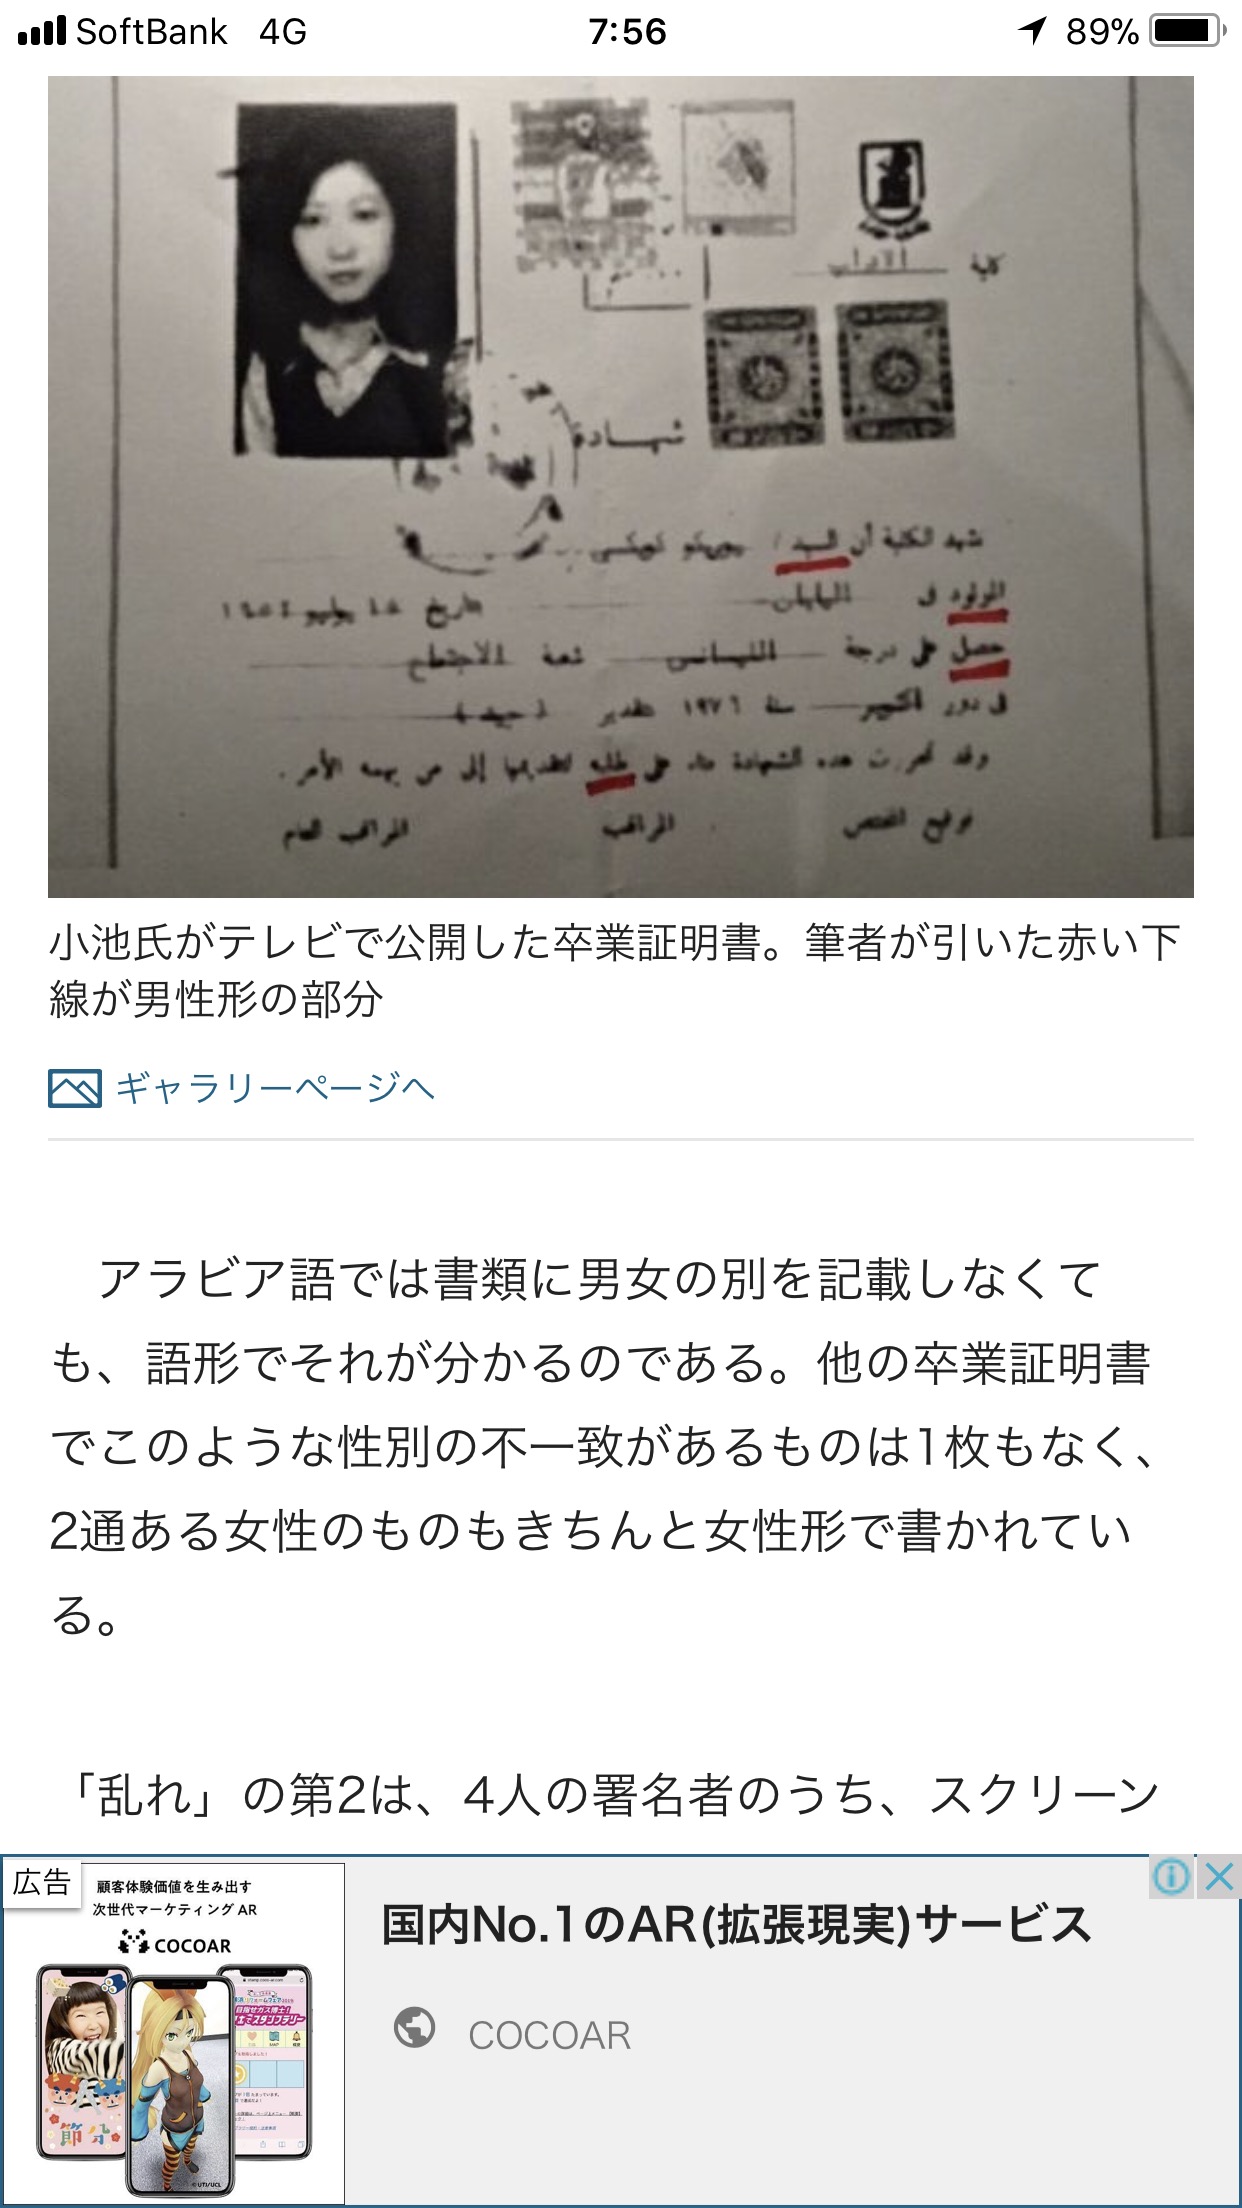 SoftBank 4G 7:56 89%
كلية الآداب
شهادة
تشهد الكلية أن السيد / يوريكو كويكى
المولود فى اليابان تاريخ
حصل على درجة الليسانس شعبة الاجتماع
فى دور أكتوبر سنة ١٩٧٦ بتقدير ( جيد )
وقد تحررت هذه الشهادة بناء على طلبه لتقديمها إلى من يهمه الأمر .
توقيع المختص المراقب المراقب العام
小池氏がテレビで公開した卒業証明書。筆者が引いた赤い下
線が男性形の部分
ギャラリーページへ
アラビア語では書類に男女の別を記載しなくて
も、語形でそれが分かるのである。他の卒業証明書
でこのような性別の不一致があるものは1枚もなく、
2通ある女性のものもきちんと女性形で書かれてい
る。
「乱れ」の第2は、4人の署名者のうち、スクリーン
広告
顧客体験価値を生み出す
次世代マーケティング AR
COCOAR
節分
©UTI/UCL
国内No.1のAR(拡張現実)サービス
COCOAR